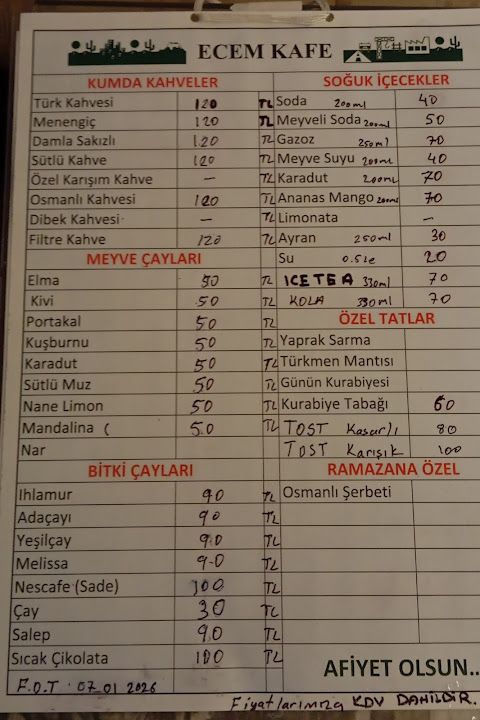 ECEM KAFE
KUMDA KAHVELER
Türk Kahvesi 120 TL
Menengiç 120 TL
Damla Sakızlı 120 TL
Sütlü Kahve 120 TL
Özel Karışım Kahve - TL
Osmanlı Kahvesi 120 TL
Dibek Kahvesi - TL
Filtre Kahve 120 TL
MEYVE ÇAYLARI
Elma 50 TL
Kivi 50 TL
Portakal 50 TL
Kuşburnu 50 TL
Karadut 50 TL
Sütlü Muz 50 TL
Nane Limon 50 TL
Mandalina ( 50 TL
Nar
BİTKİ ÇAYLARI
Ihlamur 90 TL
Adaçayı 90 TL
Yeşilçay 90 TL
Melissa 90 TL
Nescafe (Sade) 100 TL
Çay 30 TL
Salep 90 TL
Sıcak Çikolata 100 TL
F.O.T. 07 01 2026
SOĞUK İÇECEKLER
Soda 200ml 40
Meyveli Soda 200ml 50
Gazoz 250ml 70
Meyve Suyu 200ml 40
Karadut 200ml 70
Ananas Mango 200ml 70
Limonata -
Ayran 250ml 30
Su 0.5Le 20
ICETEA 330ml 70
KOLA 330ml 70
ÖZEL TATLAR
Yaprak Sarma
Türkmen Mantısı
Günün Kurabiyesi
Kurabiye Tabağı 60
TOST Kaşarlı 80
TOST Karışık 100
RAMAZANA ÖZEL
Osmanlı Şerbeti
AFİYET OLSUN..
Fiyatlarımıza KDV DAHİLDİR.